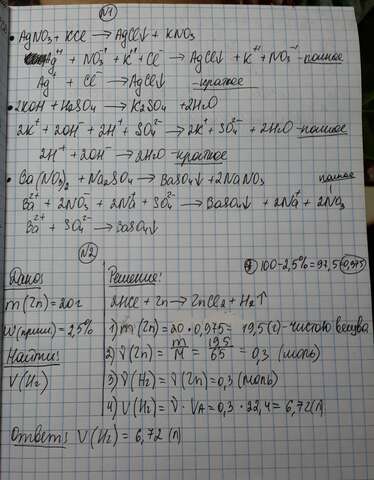 №1
• AgNO3 + KCl → AgCl↓ + KNO3
Ag+1 + NO3-1 + K+1 + Cl- → AgCl↓ + K+1 + NO3-1 - полное
Ag+ + Cl- → AgCl↓ - краткое
• 2KOH + H2SO4 → K2SO4 + 2H2O
2K+ + 2OH- + 2H+ + SO4 2- → 2K+ + SO4 2- + 2H2O - полное
2H+ + 2OH- → 2H2O - краткое
• Ba(NO3)2 + Na2SO4 → BaSO4↓ + 2NaNO3
полное
Ba2+ + 2NO3- + 2Na+ + SO4 2- → BaSO4↓ + 2Na+ + 2NO3
Ba2+ + SO4 2- → BaSO4↓
№2
Дано:
m(Zn) = 20г
ω(прим) = 2,5%
Найти:
V(H2)
Решение:
100 - 2,5% = 97,5 (0,975)
2HCl + Zn → ZnCl2 + H2↑
1) m(Zn) = 20 · 0,975 = 19,5 (г) - чистого вещва
2) ν(Zn) = m/M = 19,5/65 = 0,3 (моль)
3) ν(H2) = ν(Zn) = 0,3 (моль)
4) V(H2) = ν · VA = 0,3 · 22,4 = 6,72(л)
Ответ: V(H2) = 6,72 (л)